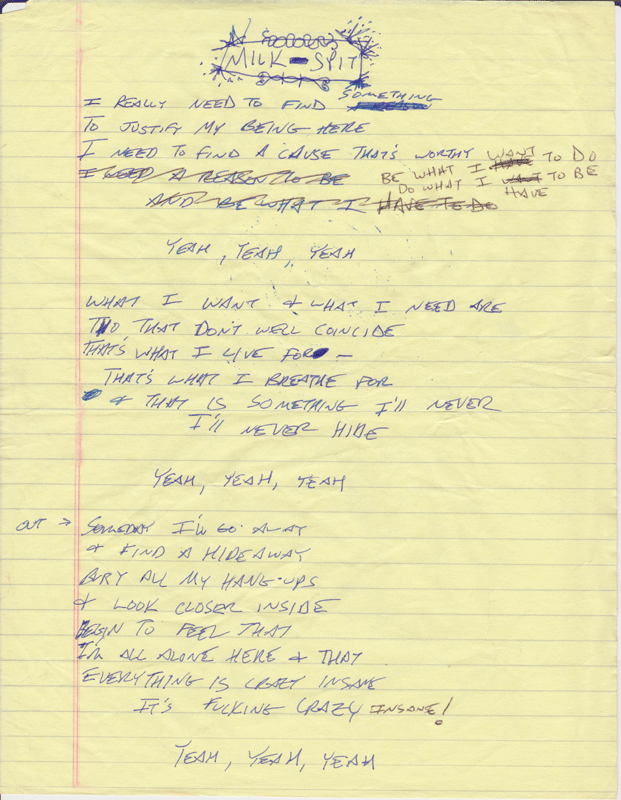 MILK-SPIT
I REALLY NEED TO FIND SOMETHING
TO JUSTIFY MY BEING HERE
I NEED TO FIND A CAUSE THAT'S WORTHY
I NEED A REASON TO BE
AND BE WHAT I HAVE TO DO
BE WHAT I HAVE WANT TO DO
DO WHAT I WANT HAVE TO BE
YEAH, YEAH, YEAH
WHAT I WANT & WHAT I NEED ARE
TWO THAT DON'T WELL COINCIDE
THAT'S WHAT I LIVE FOR -
THAT'S WHAT I BREATHE FOR
& THAT IS SOMETHING I'll NEVER
I'll NEVER HIDE
YEAH, YEAH, YEAH
OUT → SOMEDAY I'll GO AWAY
& FIND A HIDEAWAY
BURY ALL MY HANG-UPS
& LOOK CLOSER INSIDE
BEGIN TO FEEL THAT
I'M ALL ALONE HERE & THAT
EVERYTHING IS CRAZY INSANE
IT'S FUCKING CRAZY INSANE!
YEAH, YEAH, YEAH